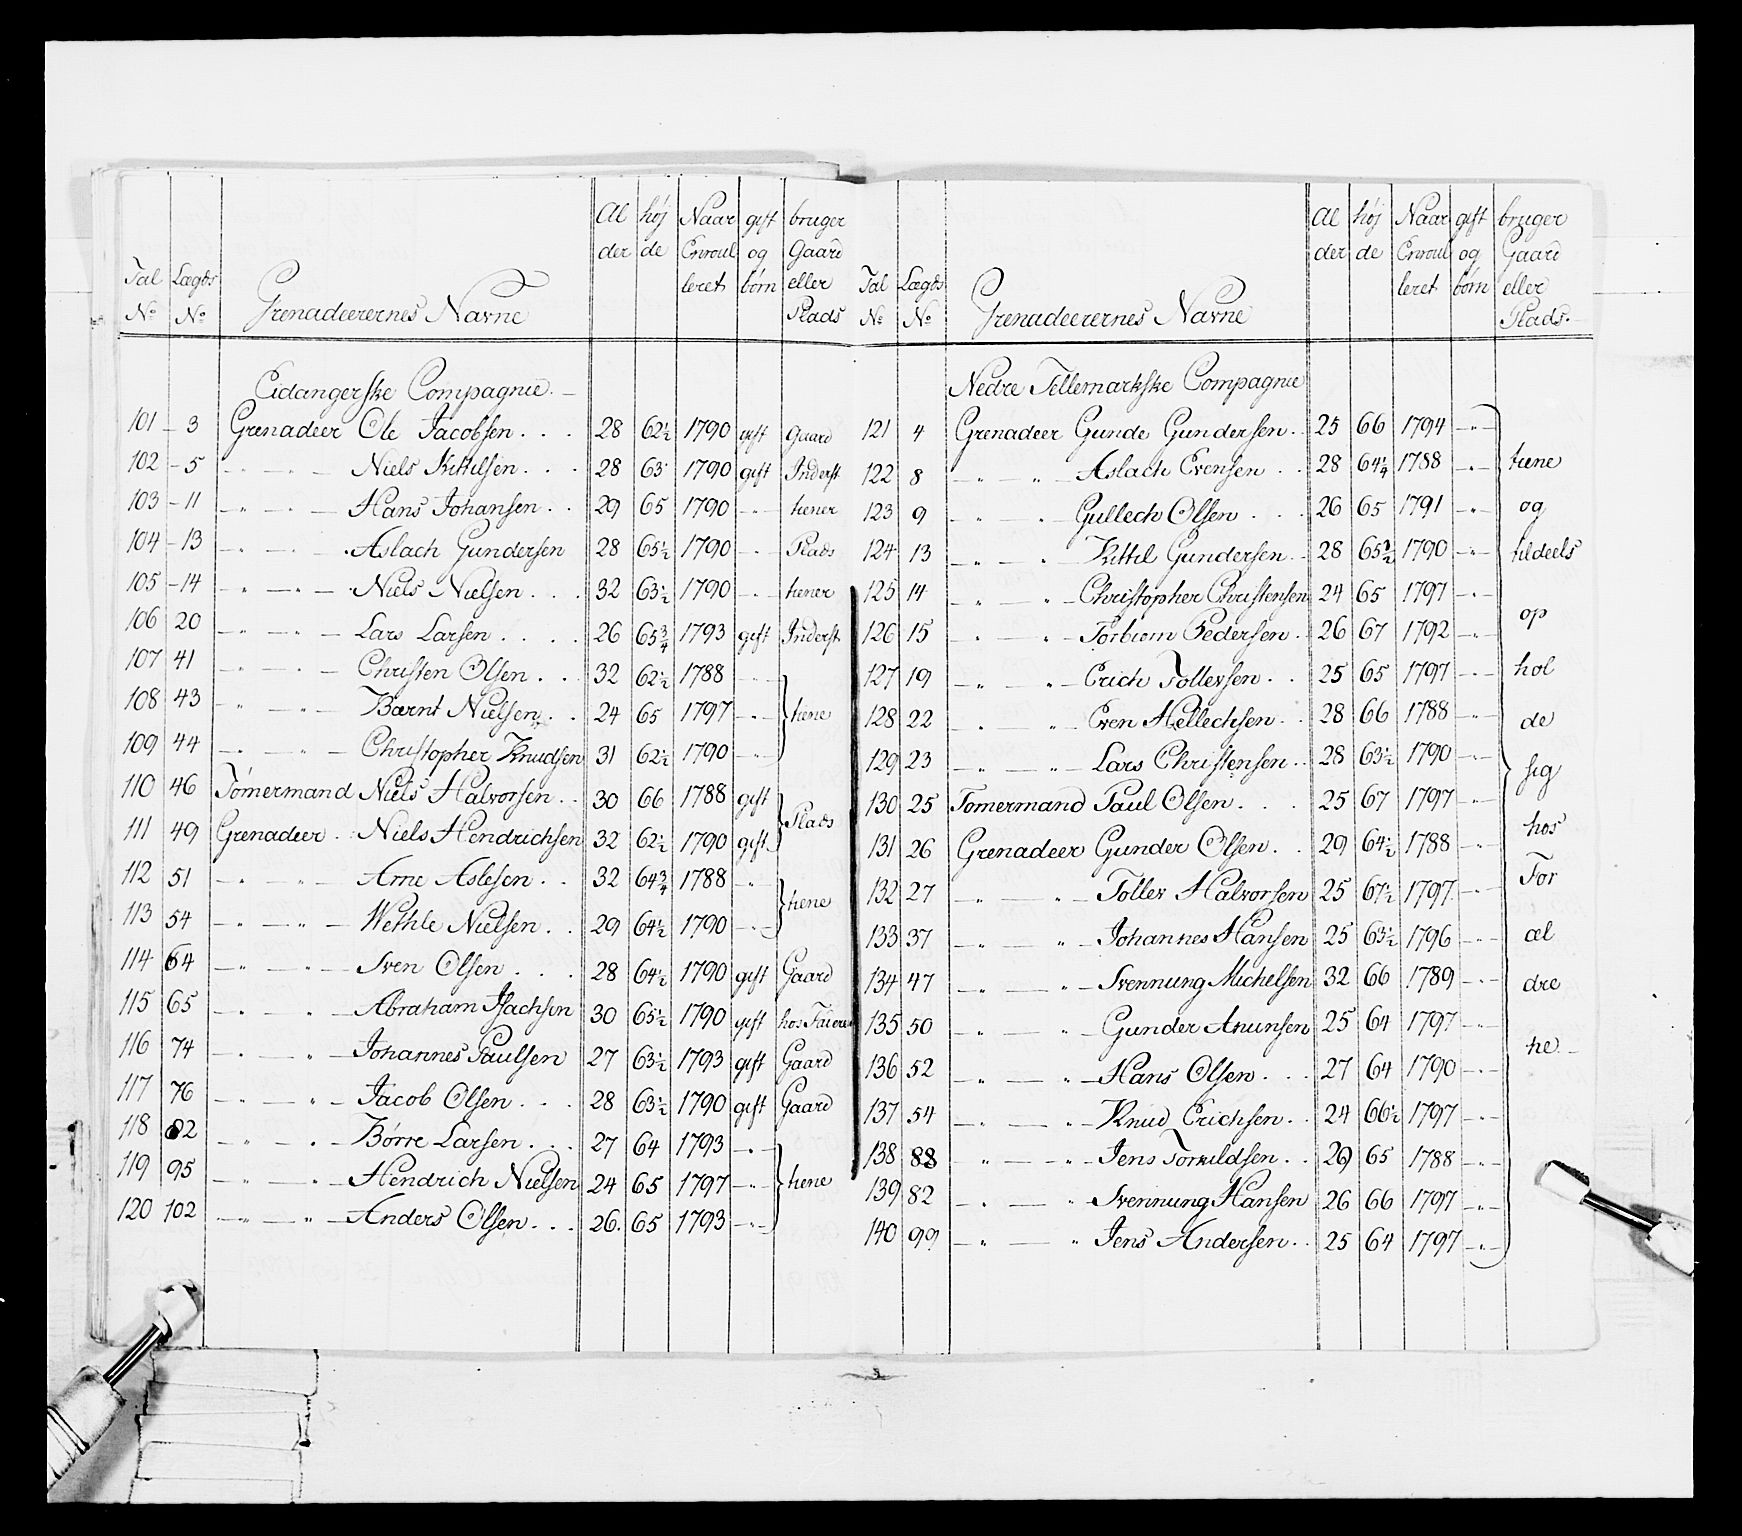 Tal No Lægds No Grenadeerernes Navne Al der høj de Naar Enroul leret gift og børn bruger Gaard eller Plads
Eidangerske Compagnie.
101 3 Grenadeer Ole Jacobsen 28 62½ 1790 gift Gaard
102 5 " Niels Kittilsen 28 63 1790 gift Inderst
103 11 " Hans Johansen 29 65 1790 " tiener
104 13 " Aslach Gundersen 28 65½ 1790 " Plads
105 14 " Niels Nielsen 32 63½ 1790 " tiener
106 20 " Lars Larsen 26 65¾ 1793 gift Inderst
107 41 " Christen Olsen 32 62½ 1788 "
108 43 " Bærnt Nielsen 24 65 1797 " tiene
109 44 " Christopher Knudsen 31 62½ 1790 "
110 46 Tömermand Niels Halvorsen 30 66 1788 gift
111 49 Grenadeer Niels Hendrichsen 32 62½ 1790 gift Plads
112 51 " Arne Aslesen 32 64¾ 1788 "
113 54 " Wethle Nielsen 29 64½ 1790 " tiene
114 64 " Sven Olsen 28 64½ 1790 gift Gaard
115 65 " Abraham Isachsen 30 65½ 1790 gift hos Faderen
116 74 " Johannes Paulsen 27 63½ 1793 gift Gaard
117 76 " Jacob Olsen 28 63½ 1790 gift Gaard
118 82 " Børre Larsen 27 64 1793 "
119 95 " Hendrich Nielsen 24 65 1797 " tiene
120 102 " Anders Olsen 26. 65 1793 "
Tal No Lægds No Grenadeerernes Navne Al der høj de Naar Enroul leret gift og børn bruger Gaard eller Plads.
Nedre Tellemarkske Compagnie
121 4 Grenadeer Gunde Gundersen 25 66 1794 "
122 8 " Aslach Evensen 28 64¼ 1788 " tiene
123 9 " Gullech Olsen 26 65 1791 " og
124 13 " Kittil Gundersen 28 65½ 1790 " tildeels
125 14 " Christopher Christensen 24 65 1797 "
126 15 " Torbiorn Pedersen 26 67 1792 " op
127 19 " Erich Tollevsen 25 65 1797 " hol
128 22 " Even Hellechsen 28 66 1788 " de
129 23 " Lars Christensen 28 63½ 1790 " sig
130 25 Tomermand Paul Olsen 25 67 1797 "
131 26 Grenadeer Gunder Olsen 29 64½ 1788 " hos
132 27 " Tollev Halvorsen 25 67½ 1797 " For
133 37 " Johannes Hansen 25 63½ 1796 " æl
134 47 " Svennung Michelsen 32 66 1789 " dre
135 50 " Gunder Anunsen 25 64 1797 "
136 52 " Hans Olsen 27 64 1790 " ne
137 54 " Knud Erichsen 24 66½ 1797 "
138 88 " Jens Torkildsen 29 65 1788 "
139 82 " Svennung Hansen 26 66 1797 "
140 99 " Jens Andersen 25 64 1797 "